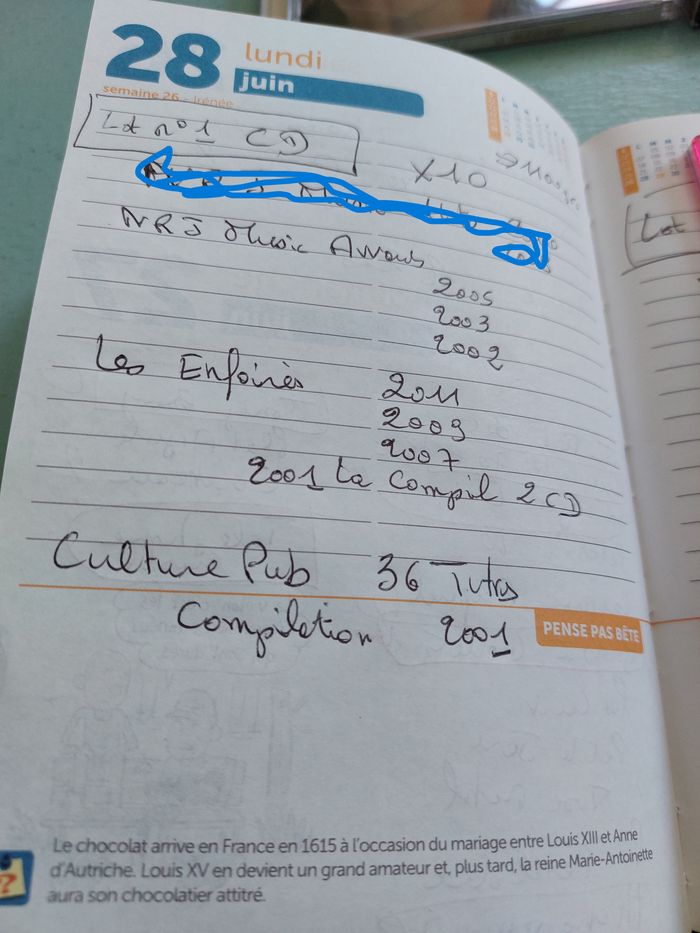 28 lundi
juin
semaine 26 - Irénée
Lot n°1 CD
X10
NRJ Music Awards
2005
2003
2002
Les Enfoirés 2011
2009
2007
2001 La Compil 2 CD
Culture Pub 36 Titres
Compilation 2001
PENSE PAS BÊTE
Lot
Le chocolat arrive en France en 1615 à l'occasion du mariage entre Louis XIII et Anne
d'Autriche. Louis XV en devient un grand amateur et, plus tard, la reine Marie-Antoinette
aura son chocolatier attitré.